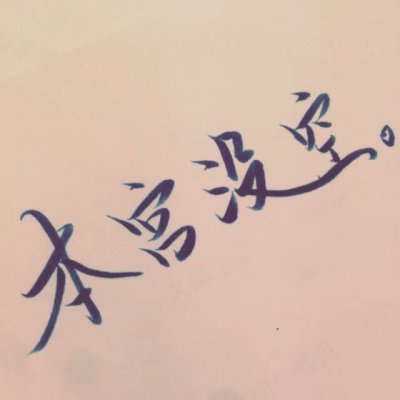 本宫没空。